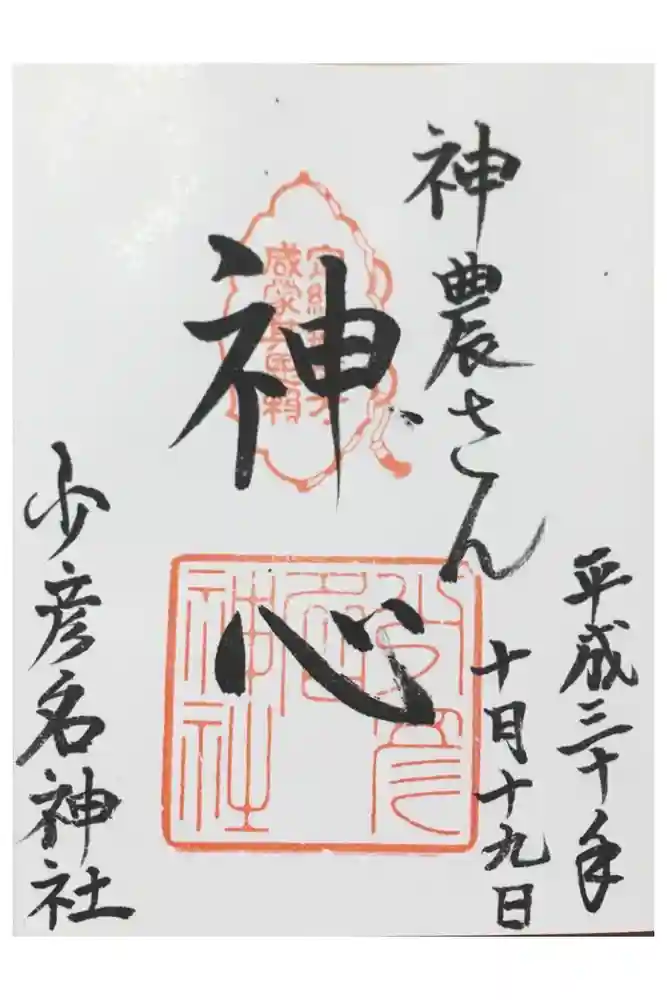 神農さん
平成三十年
十月十九日
神心
少彦名神社
少彦名神社